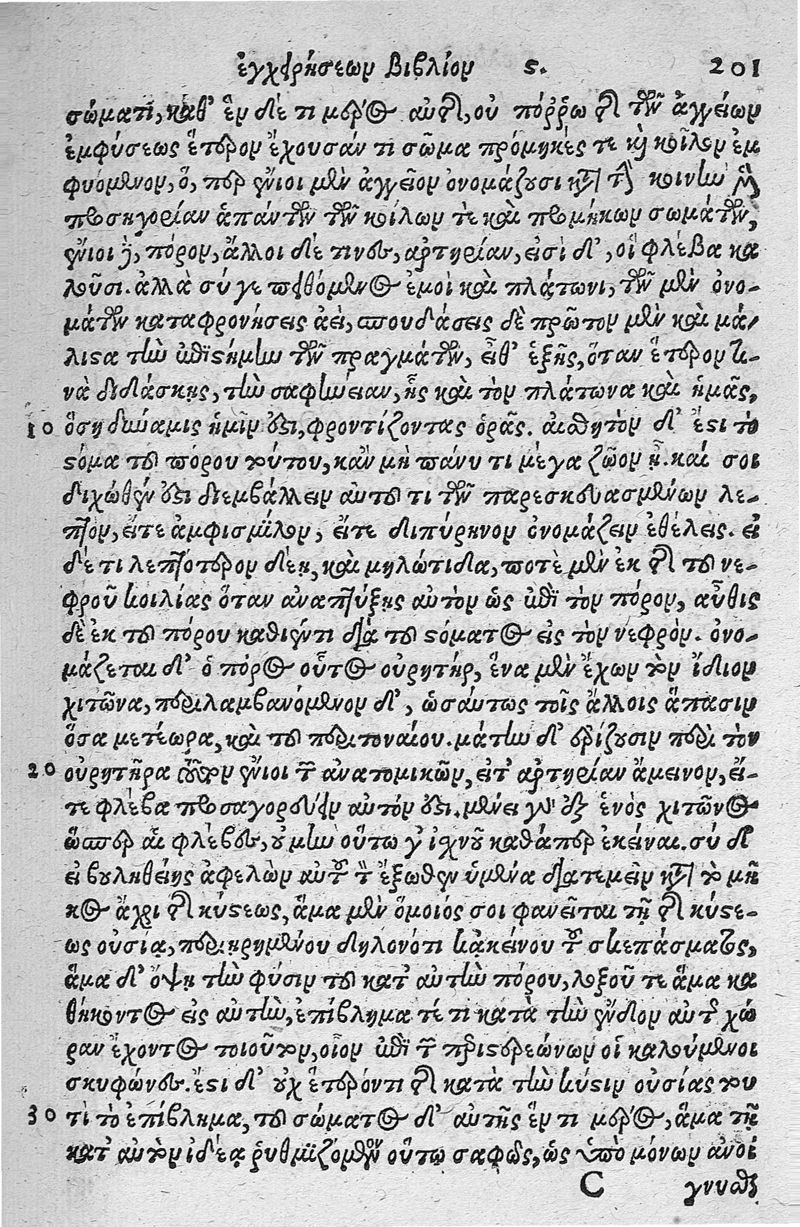 ἐγχειρήσεων βιβλίον ϛ. 201
σώματι, καθ' ἓν δέ τι μέρος αὐτῆς, οὐ πόῤῥω τῆς τῶν ἀγγείων
ἐμφύσεως ἕτερον ἔχουσάν τι σῶμα πρόμηκές τε καὶ κοῖλον ἐμ
φυόμενον, ὅ, περ ἔνιοι μὲν ἀγγεῖον ὀνομάζουσι κατὰ τὴν κοινὴν
προσηγορίαν ἁπάντων τῶν κοίλων τε καὶ προμήκων σωμάτων,
ἔνιοι δὲ, πόρον, ἄλλοι δέ τινες, ἀρτηρίαν, εἰσὶ δ', οἳ φλέβα κα
λοῦσι. ἀλλὰ σύ γε πειθόμενος ἐμοὶ καὶ πλάτωνι, τῶν μὲν ὀνο-
μάτων καταφρονήσεις ἀεὶ, σπουδάσεις δὲ πρῶτον μὲν καὶ μά-
λιστα τὴν ἐπιστήμην τῶν πραγμάτων, εἶθ' ἑξῆς, ὅταν ἕτερον τι-
νὰ διδάσκῃς, τὴν σαφήνειαν, ἧς καὶ τὸν πλάτωνα καὶ ἡμᾶς,
10 ὅση δύναμις ἡμῖν ἐστι, φροντίζοντας ὁρᾷς. αἰσθητὸν δ' ἐστὶ τὸ
στόμα τοῦ πόρου τούτου, κἂν μὴ πάνυ τι μέγα ζῶον ᾖ. καί σοι
διχόθεν ἔστι διεμβάλλειν αὐτοῦ τι τῶν παρεσκευασμένων λε-
πτὸν, εἴτε ἀμφίσμιλον, εἴτε διπύρηνον ὀνομάζειν ἐθέλεις. εἰ
δέ τι λεπτότερον δέῃ, καὶ μηλώτιδα, ποτὲ μὲν ἐκ τῆς τοῦ νε-
φροῦ κοιλίας ὅταν ἀναπτύξῃς αὐτὸν ὡς ἐπὶ τὸν πόρον, αὖθις
δὲ ἐκ τοῦ πόρου καθιέντι διὰ τοῦ στόματος εἰς τὸν νεφρόν. ὀνο-
μάζεται δ' ὁ πόρος οὗτος οὐρητήρ, ἕνα μὲν ἔχων τὸν ἴδιον
χιτῶνα, περιλαμβανόμενον δ', ὡσαύτως τοῖς ἄλλοις ἅπασιν
ὅσα μετέωρα, καὶ τοῦ περιτοναίου. μάτην δ' ἐρίζουσιν περὶ τὸν
20 οὐρητῆρα ἔνιοι τῶν ἀνατομικῶν, εἴτ' ἀρτηρίαν ἄμεινον, εἴ-
τε φλέβα προσαγορεύειν αὐτόν ἐστι. μένει γὰρ ἐξ ἑνὸς χιτῶνος
ὥσπερ αἱ φλέβες, οὐ μὴν οὕτω γ' ἰχνοῦ καθάπερ ἐκεῖναι. σὺ δ'
εἰ βουληθείης ἀφελὼν αὐτοῦ τὸν ἔξωθεν ὑμένα διατεμεῖν κατὰ τὸ μῆ
κος ἄχρι τῆς κύστεως, ἅμα μὲν ὅμοιός σοι φανεῖται τῇ τῆς κύστε-
ως οὐσίᾳ, περιῃρημένου δηλονότι κἀκείνου τοῦ σκεπάσματος,
ἅμα δ' ὄψῃ τὴν φύσιν τοῦ κατ' αὐτὴν πόρου, λοξοῦ τε ἅμα κα
θήκοντος εἰς αὐτὴν, ἐπίβλημα τέ τι κατὰ τὴν ἔνδον αὐτοῦ χώ
ραν ἔχοντος τοιοῦτον, οἷον ἐπὶ τῶν περιστερεώνων οἱ καλούμενοι
σκυφῶνες. ἔστι δ' οὐχ ἕτερόν τι τῆς κατὰ τὴν κύστιν οὐσίας του
30 τὶ τὸ ἐπίβλημα, τοῦ σώματος δ' αὐτῆς ἕν τι μέρος, ἅμα τῇ
κατ' αὐτὸν ἰδέᾳ ῥυθμιζόμενον οὕτω σαφῶς, ὡς ὑπὸ μόνων ἀνοί
C γνυσθ